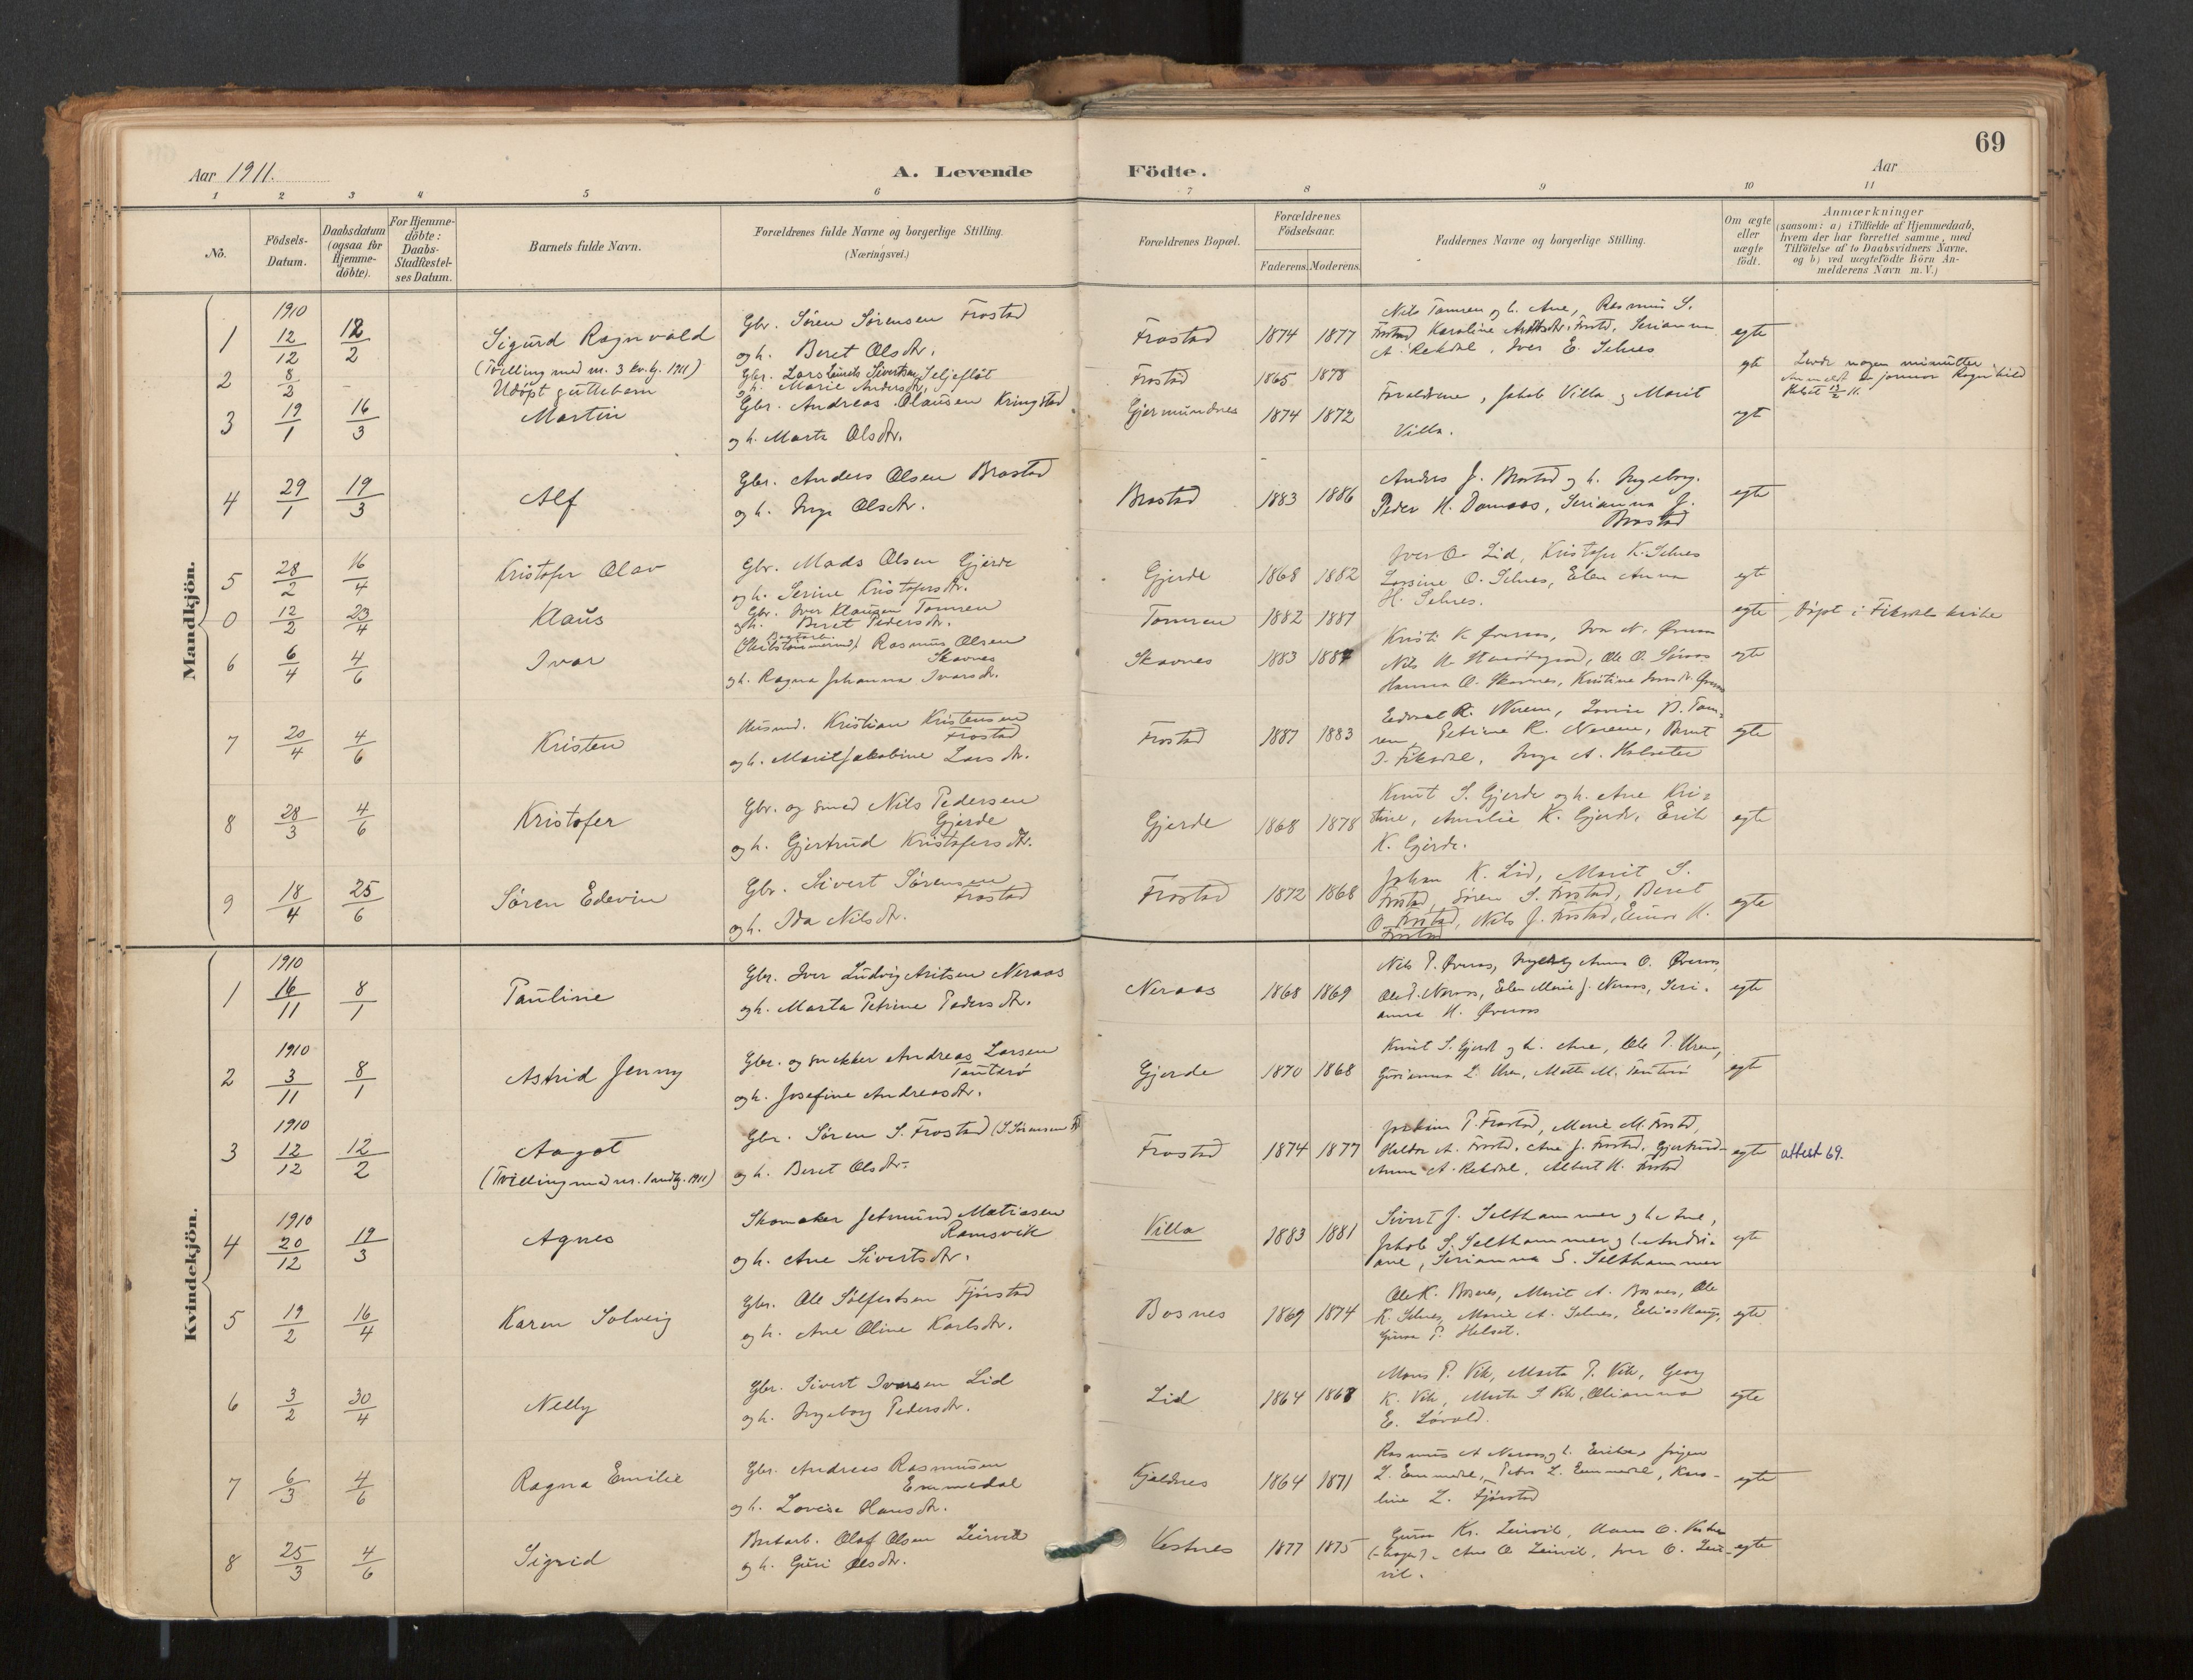 69
Aar 1911.
A. Levende Födte.
Aar
1 2 3 4 5 6 7 8 9 10 11
No.
Födsels-Datum.
Daabsdatum (ogsaa for Hjemme-döbte).
For Hjemme-döbte: Daabs-Stadfæstel-ses Datum.
Barnets fulde Navn.
Forældrenes fulde Navne og borgerlige Stilling. (Næringsvei.)
Forældrenes Bopæl.
Forældrenes Födselsaar.
Faderens. Moderens.
Faddernes Navne og borgerlige Stilling.
Om ægte eller uægte födt.
Anmærkninger
(saasom: a) i Tilfælde af Hjemmedaab, hvem der har forrettet samme, med Tilföielse af to Daabsvidners Navne, og b) ved uægtefödte Börn An-melderens Navn m. V.)
Mandkjön.
1 1910 12/12 12/2 Sigurd Ragnvald (Tvilling med nr. 3 kv.kj. 1911)
Gbr. Søren Sørensen Frostad
og h. Beret Olsdtr.
Frostad 1874 1877
Nils Tomren og h. Ane, Rasmus S.
Frostad, Karoline Frostd, Serianna
A. Rekdal, Iver E. Selnes
egte
2 8/2 - Udöpt guttebarn
Gbr. Lars Laurits Sivertsen Seljeflot
h. Marie Andersdtr.
Frostad 1865 1878
egte
Levde nogen minutter
3 19/1 16/3 Martin
Gbr. Andreas Olausen Kringstad
og h. Marta Olsdtr.
Gjermundnes 1874 1872
Forældrene, Jakob Villa og Marit
Villa.
egt
4 29/1 19/3 Alf
Gbr. Anders Olsen Brastad
og h. Inga Olsdtr.
Brastad 1883 1886
Anders J. Brastad og h. Ingeborg.
Peder K. Damaas, Serianna J.
Brastad
egte
5 28/2 16/4 Kristofer Olav
Gbr. Mads Olsen Gjerde
og h. Serine Kristofersdtr.
Gjerde 1868 1882
Iver O. Lid, Kristofer K. Selnes
Larsine O. Selnes, Elen Anna
H. Selnes.
egte
0 12/2 23/4 Klaus
Gbr. Iver Klausen Tomren
og h. Beret Pedersdtr.
Tomren 1882 1887
egte
Döpt i Fiksdal kirke
6 6/4 4/6 Ivar
Rasmus Olsen
Skavnes
og h. Ragna Johanna Ivarsdtr.
Skavnes 1883 1887
Hanna O. Skavnes, Kristine
egte
7 20/4 4/6 Kristen
Husmd. Kristian Kristensen
Frostad
og h. Marit Jakobine Larsdtr.
Frostad 1887 1883
Edvard R. Nerem, Lovise P. Tom-
ren, Petrine R. Nerem, Bernt
J. Fiksdal, Inga A. Halseter
egte
8 28/3 4/6 Kristofer
Gbr. og smed Nils Pedersen
Gjerde
og h. Gjertrud Kristofersdtr.
Gjerde 1868 1878
Knut S. Gjerde og h. Ane Kri-
stine, Amalie K. Gjerde, Erik
K. Gjerde.
egte
9 18/4 25/6 Søren Edevin
Gbr. Sivert Sørensen
Frostad
og h. Ida Nilsdtr.
Frostad 1872 1868
Johan K. Lid, Marit S.
Frostad, Søren S. Frostad, Beret
O. Frostad, Nils J. Frostad, Einar K.
Frostad
egte
Kvindekjön.
1 1910 16/11 8/1 Pauline
Gbr. Iver Ludvig Aritsen Neraas
og h. Marta Petrine Pedersdtr.
Neraas 1868 1869
Nils P. Øveraas, Ingeborg Anna O. Øveraas,
Ole P. Neraas, Elen Marie J. Neraas, Seri-
anna K. Øveraas
egte
2 1910 3/11 8/1 Astrid Jenny
Gbr. og snekker Andreas Larsen
Tauterø
og h. Josefine Andreasdtr.
Gjerde 1870 1868
Knut S. Gjerde og h. Ane, Ole P. Uren,
Gurianna L. Uren, Mette M. Tauterø
egte
3 1910 12/12 12/2 Aagot (Tvilling med nr. 1 mandkj. 1911)
Gbr. Søren S. Frostad (S. Sørensen F.)
og h. Beret Olsdtr.
Frostad 1874 1877
P. Frostad, Marie M. Frostad,
Haldor A. Frostad, Ane J. Frostad, Gjertrud
Anna A. Rekdal, Albert K. Frostad
egte
attest 69.
4 1910 20/12 19/3 Agnes
Skomaker Jetmund Matiasen
Ramsvik
og h. Ane Sivertsdtr.
Villa 1883 1881
Sivert J. Salthammer og h. Ane,
Jakob S. Salthammer og h. Andri-
ane, Serianna S. Salthammer
egte
5 19/2 16/4 Karen Solveig
Gbr. Ole Sølfestsen Fjørstad
og h. Ane Oline Karlsdtr.
Bosnes 1869 1874
Ole K. Bosnes, Marit A. Bosnes, Ole
K. Selnes, Marie A. Selnes, Elias Hauge,
Guroa P. Helset.
egte
6 3/2 30/4 Nelly
Gbr. Sivert Ivarsen Lid
og h. Ingeborg Pedersdtr.
Lid 1864 1868
Mons P. Vik, Marta P. Vik, Georg
K. Vik, Marta S. Vik, Olianna
E. Løvold.
egte
7 6/3 4/6 Ragna Emilie
Gbr. Andreas Rasmusen
Emmedal
og h. Lovise Hansdtr.
Kjeldnes 1864 1871
Rasmus A. Neraas og h. Erika, Jørgen
L. Emmedal, Peter L. Emmedal, Karo-
line L. Fjørstad
egte
8 25/3 4/6 Sigrid
Olaf Olsen Leirvik
og h. Guri Olsdtr.
Vestnes 1877 1875
Guroa Kr. Leirvik, Hans O. Vestnes
(-hagen), Ane O. Leirvik, Iver O. Leir-
vik.
egte